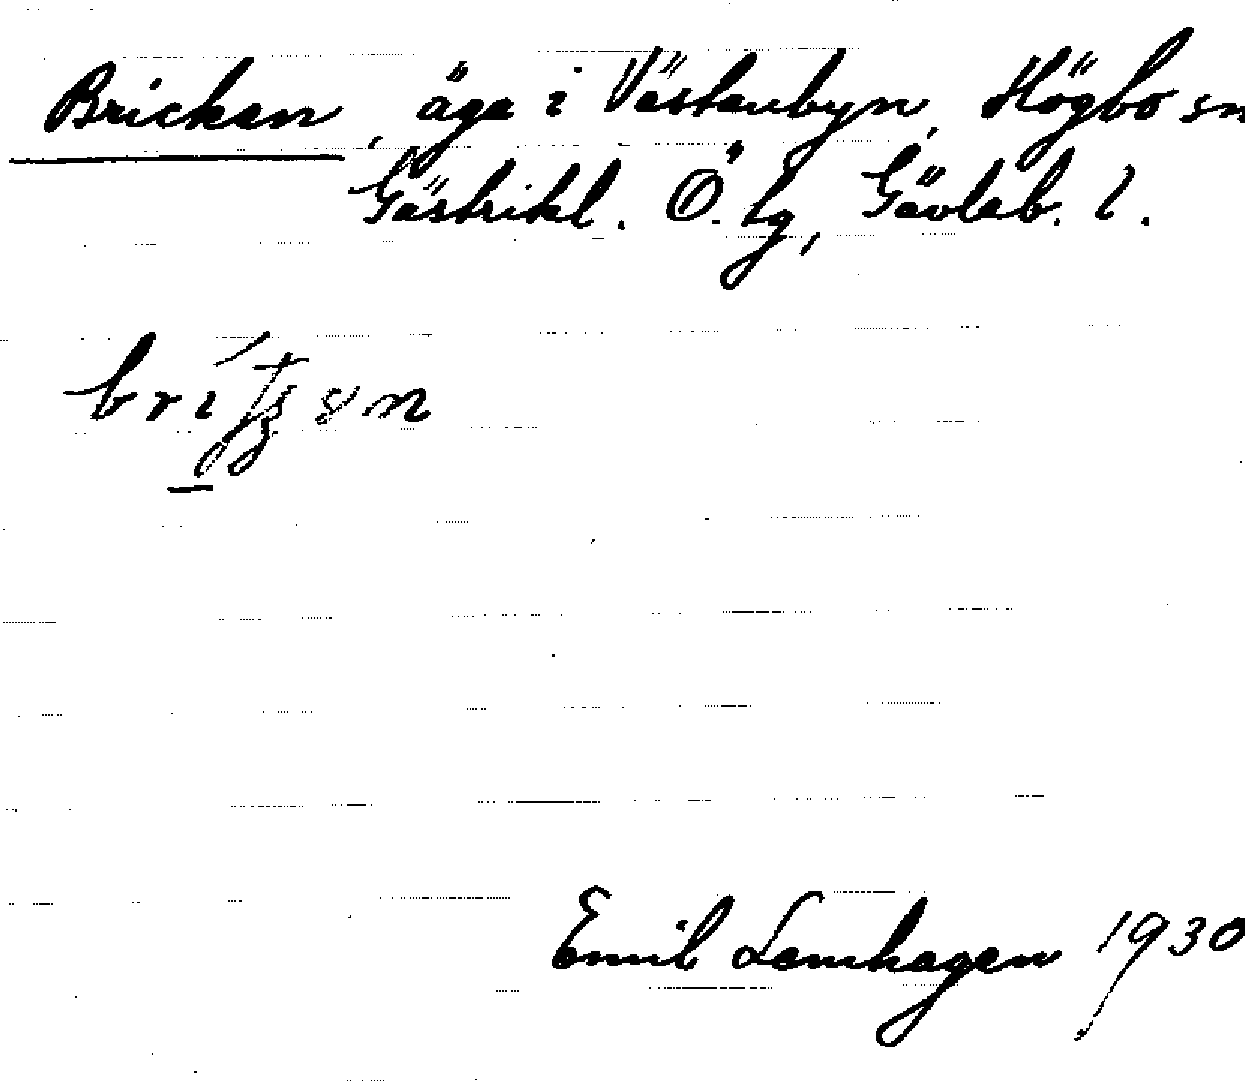 Brickan, äga i Västanbyn, Högbo sn
Gästrikl. Ö. tg, Gävleb. l.
Emil Lamhagen 1930